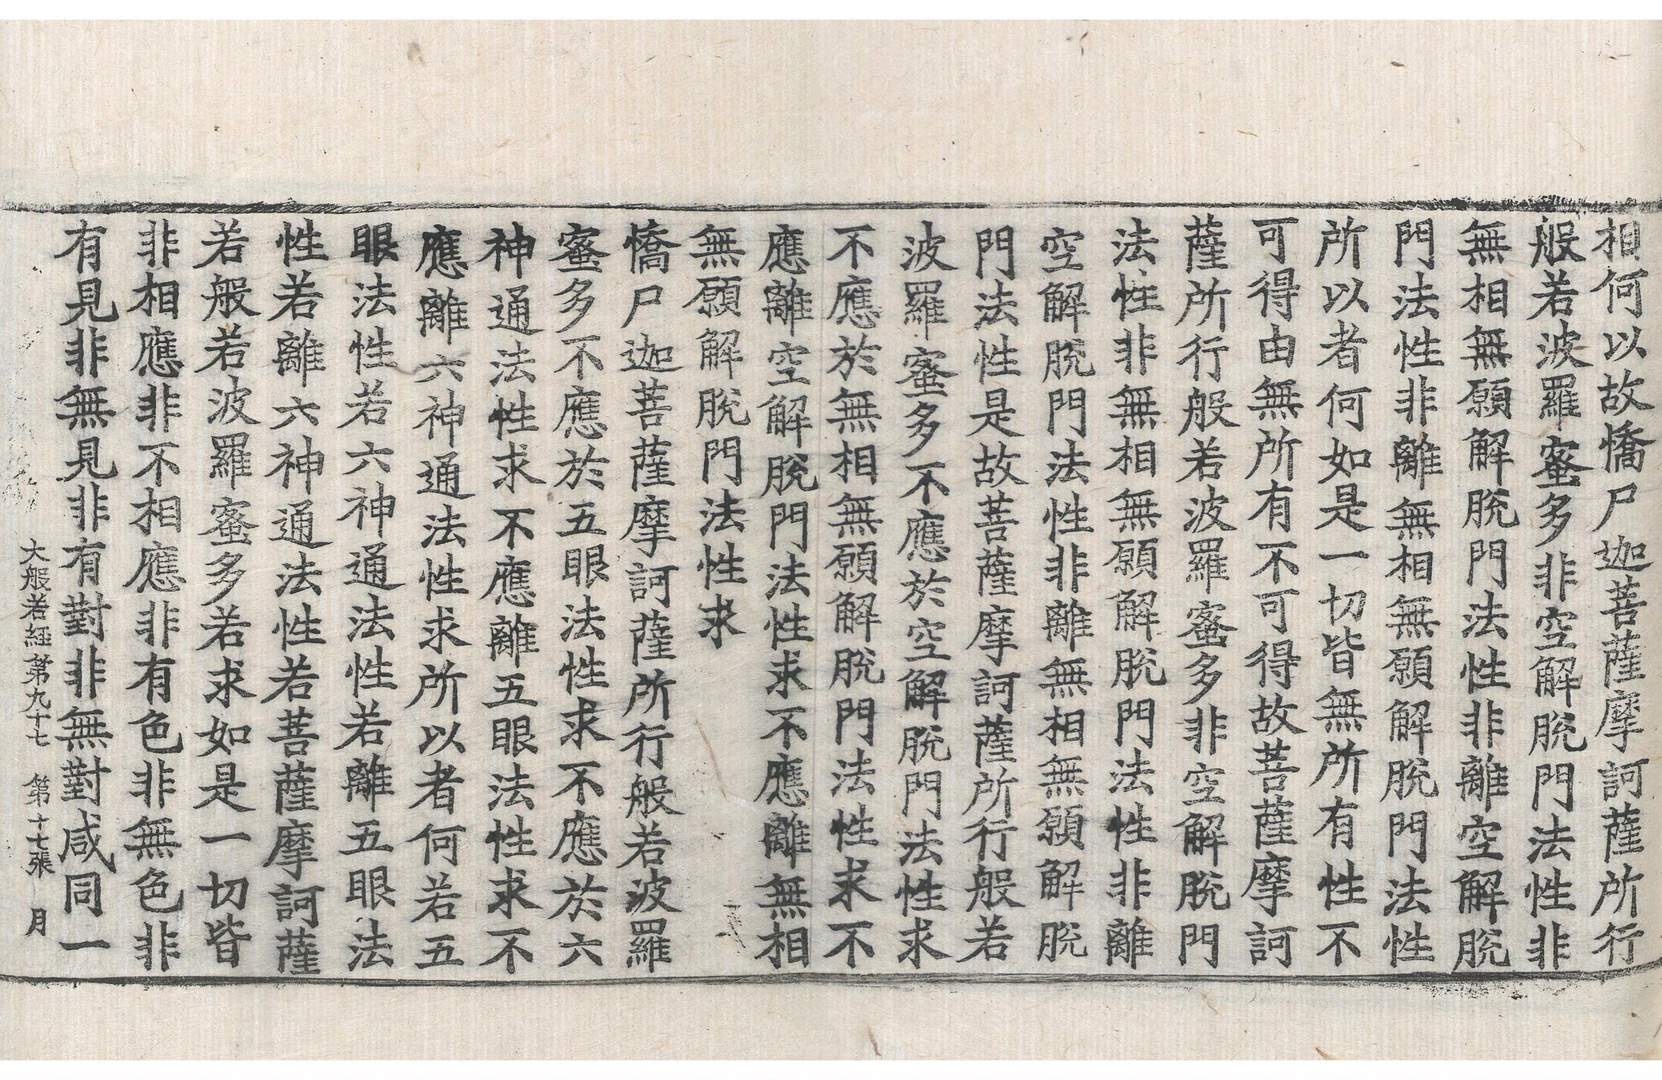 相何以故憍尸迦菩薩摩訶薩所行
般若波羅蜜多非空解脫門法性非
無相無願解脫門法性非離空解脫
門法性非離無相無願解脫門法性
所以者何如是一切皆無所有性不
可得由無所有不可得故菩薩摩訶
薩所行般若波羅蜜多非空解脫門
法性非無相無願解脫門法性非離
空解脫門法性非離無相無願解脫
門法性是故菩薩摩訶薩所行般若
波羅蜜多不應於空解脫門法性求
不應於無相無願解脫門法性求不
應離空解脫門法性求不應離無相
無願解脫門法性求
憍尸迦菩薩摩訶薩所行般若波羅
蜜多不應於五眼法性求不應於六
神通法性求不應離五眼法性求不
應離六神通法性求所以者何若五
眼法性若六神通法性若離五眼法
性若離六神通法性若菩薩摩訶薩
若般若波羅蜜多若求如是一切皆
非相應非不相應非有色非無色非
有見非無見非有對非無對咸同一
大般若經第九十七 第十七張 月